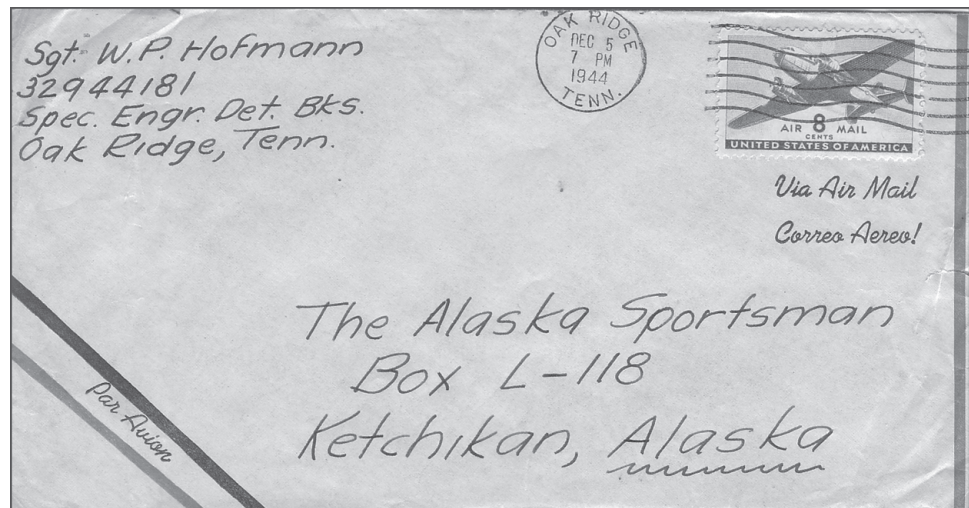 Sgt. W. P. Hofmann
32944181
Spec. Engr. Det. Bks.
Oak Ridge, Tenn.
OAK RIDGE
DEC 5
7 PM
1944
TENN.
AIR 8 MAIL
CENTS
UNITED STATES OF AMERICA
Via Air Mail
Correo Aereo!
The Alaska Sportsman
Box L-118
Ketchikan, Alaska
Par Avion